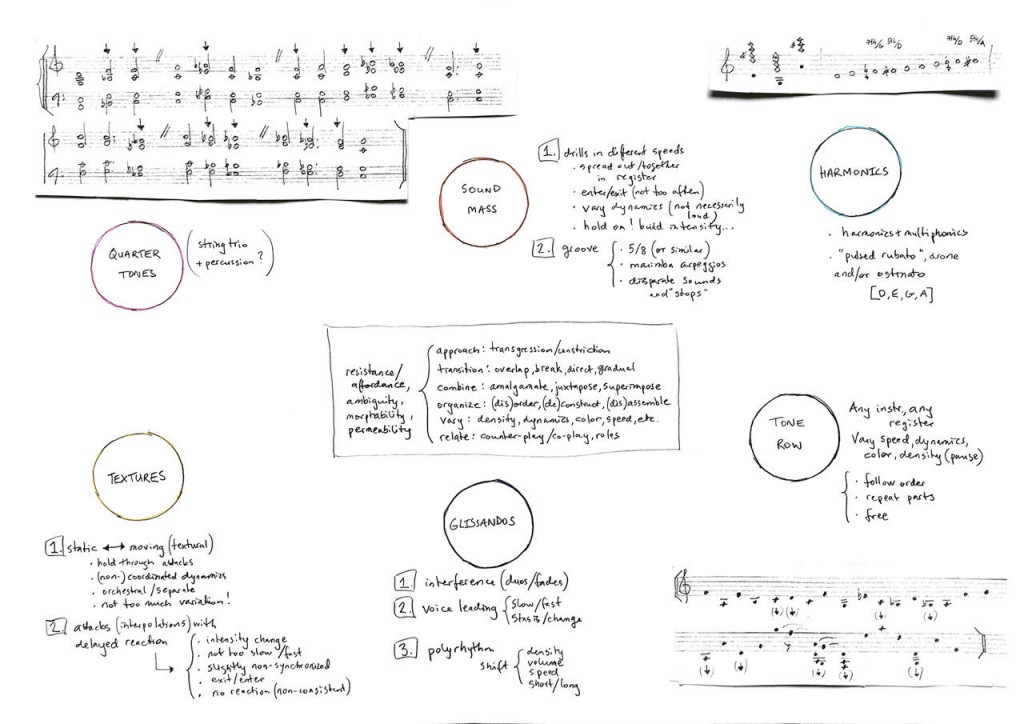 7th/G 5th/D
7th/D 5th/A
QUARTER
TONES
(string trio
+ percussion?)
SOUND
MASS
1. drills in different speeds
· spread out/together
in register
· enter/exit (not too often)
· vary dynamics (not necessarily
loud)
· hold on! build intensity...
2. groove
· 5/8 (or similar)
· marimba arpeggios
· disparate sounds
and "stops"
HARMONICS
· harmonics + multiphonics
· "pulsed rubato", drone
and/or ostinato
[D, E, G, A]
resistance/
affordance,
ambiguity,
morphability,
permeability
approach: transgression/constriction
transition: overlap, break, direct, gradual
combine: amalgamate, juxtapose, superimpose
organize: (dis)order, (de)construct, (dis)assemble
vary: density, dynamics, color, speed, etc.
relate: counter-play/co-play, roles
TONE
ROW
Any instr., any
register
Vary speed, dynamics,
color, density (pause)
· follow order
· repeat parts
· free
TEXTURES
1. static ↔ moving (textural)
· hold through attacks
· (non-) coordinated dynamics
· orchestral/separate
· not too much variation!
2. attacks (interpolations) with
delayed reaction
· intensity change
· not too slow/fast
· slightly non-synchronized
· exit/enter
· no reaction (non-consistent)
GLISSANDOS
1. interference (duos/fades)
2. voice leading
slow/fast
stasis/change
3. polyrhythm
shift
density
volume
speed
short/long